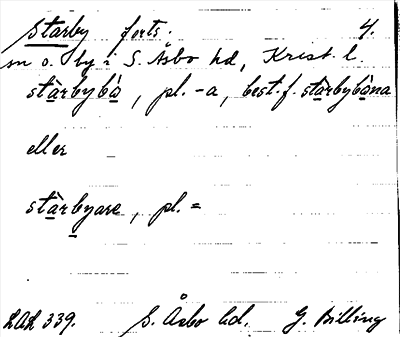 Starby forts. 4.
sn o. by i S. Åsbo hd, Krist. l.
stàrbybò, pl. -a, best. f. stàrbybòna
eller
stàrbyare, pl. =
LAL 339. S. Åsbo hd. G. Billing